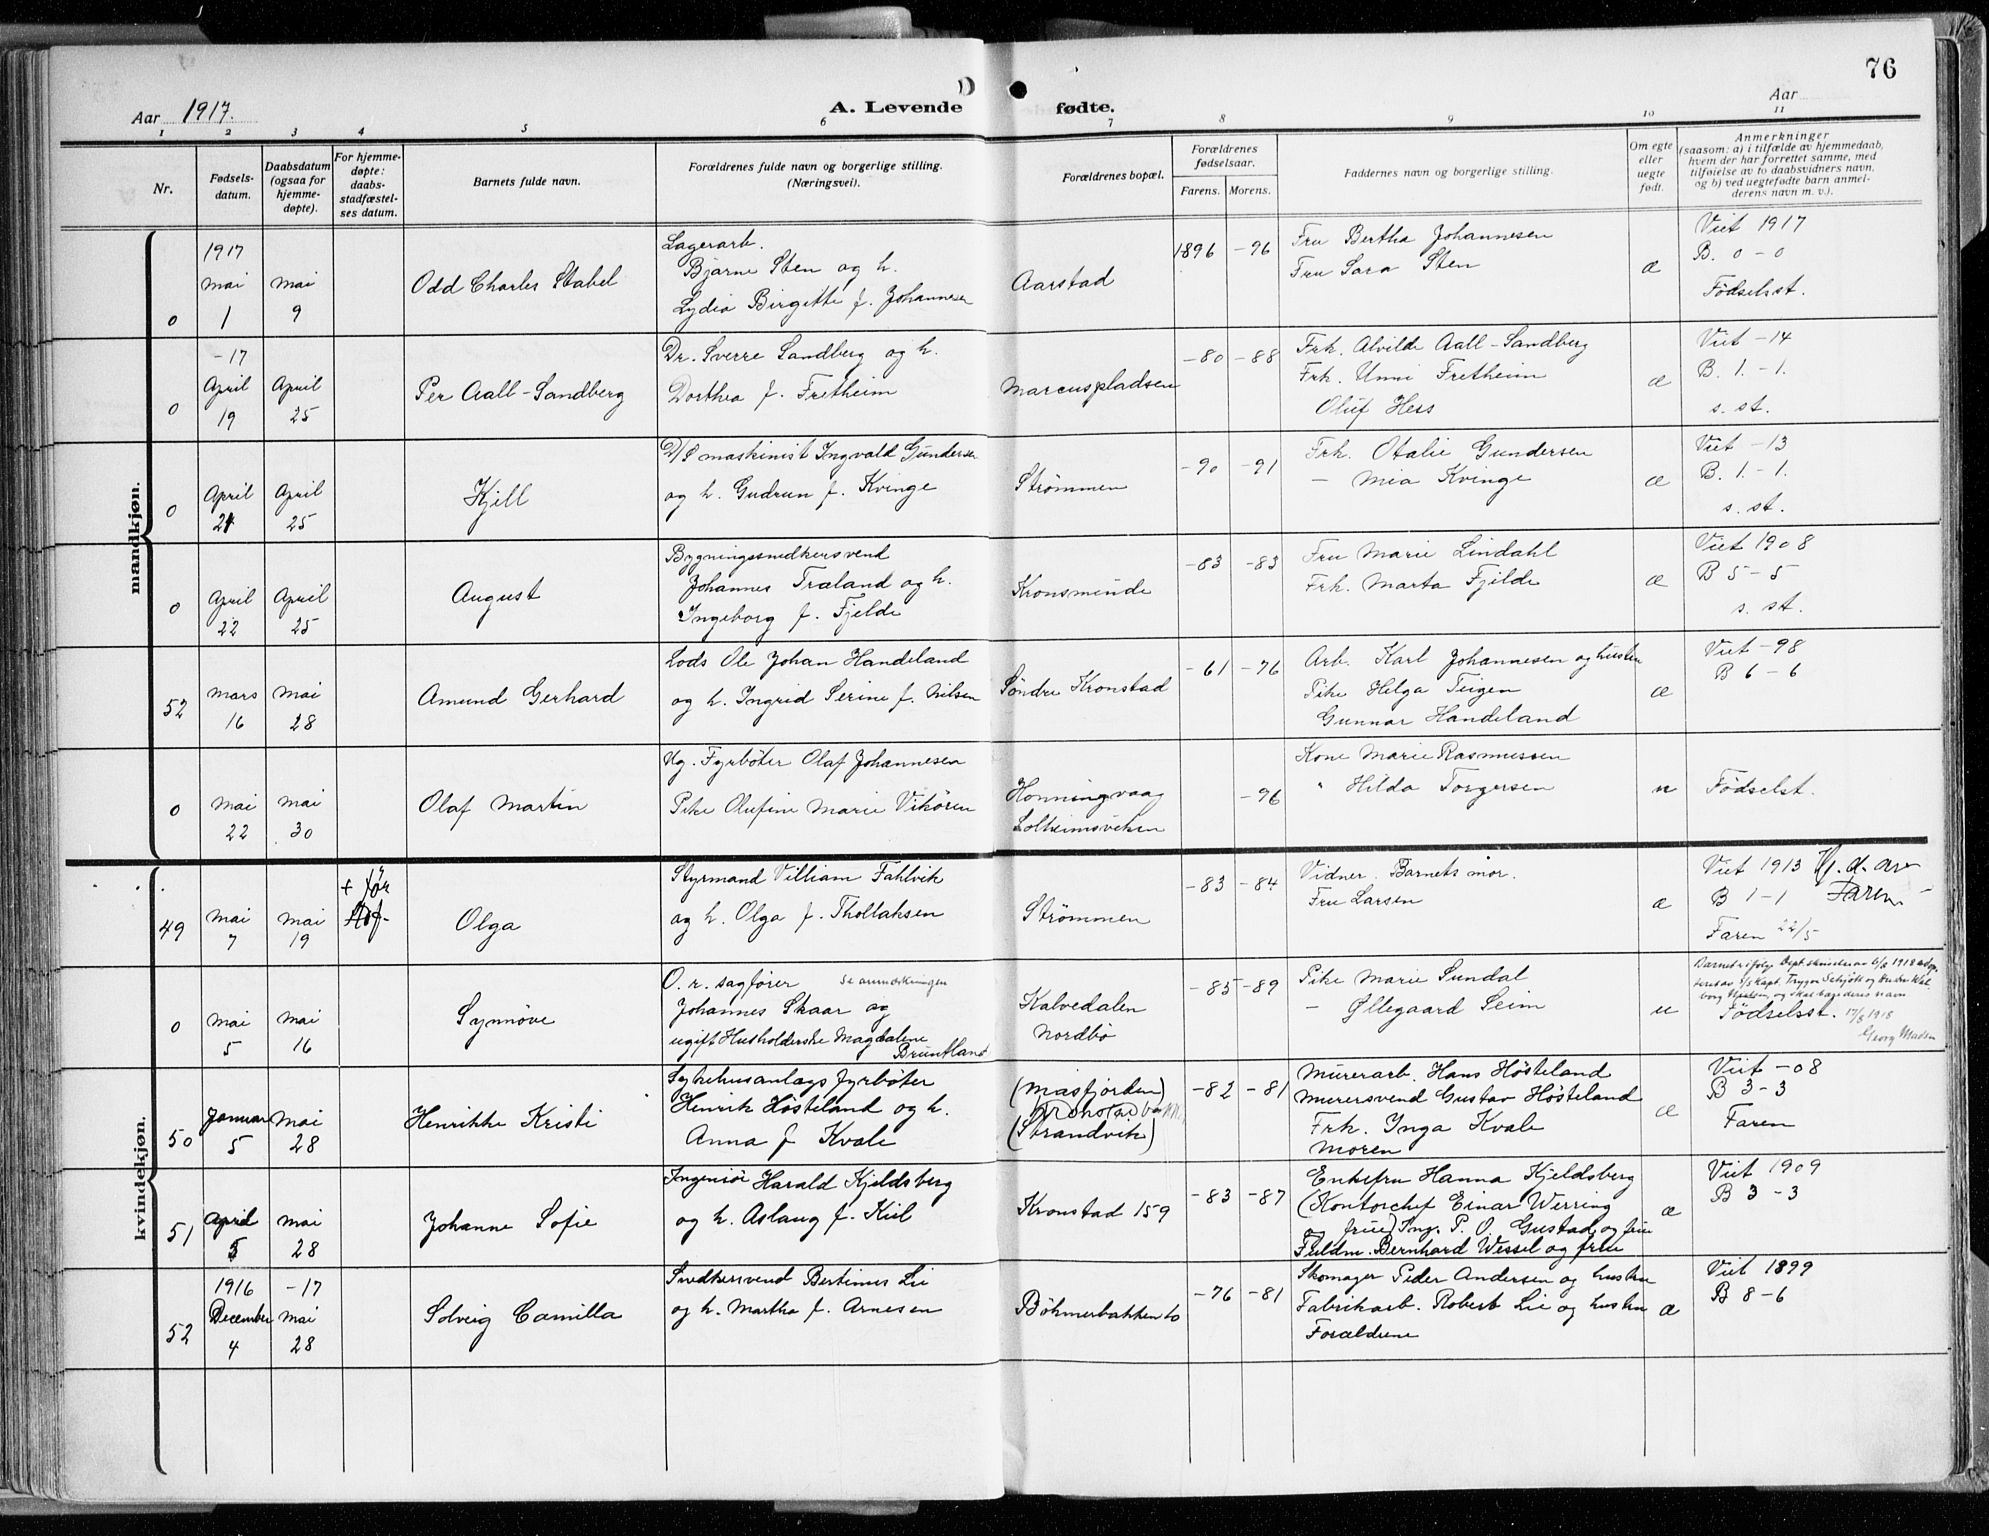 76
Aar 1917.
A. Levende
fødte.
Aar
1 2 3 4 5 6 7 8 9 10 11
Nr.
Fødsels-
datum.
Daabsdatum
(ogsaa for
hjemme-
døpte).
For hjemme-
døpte:
daabs-
stadfæstel-
ses datum.
Barnets fulde navn.
Forældrenes fulde navn og borgerlige stilling.
(Næringsvei).
Forældrenes bopæl.
Forældrenes
fødselsaar.
Farens. Morens.
Faddernes navn og borgerlige stilling.
Om egte
eller
uegte
født.
Anmerkninger
(saasom: a) i tilfælde av hjemmedaab,
hvem der har forrettet samme, med
tilføielse av to daabsvidners navn,
og b) ved uegtefødte barn anmel-
derens navn m. v.).
mandkjøn.
0
1917
Mai
1
Mai
9
Odd Charles Stabel
Lagerarb.
Bjarne Sten og h.
Lydia Birgitte f. Johannesen
Aarstad
1896 -96
Fru Bertha Johannesen
Fru Sara Sten
æ
Viet 1917
B. 0-0
Fødselsst.
0
-17
April
19
April
25
Per Aall-Sandberg
Dr. Sverre Sandberg og h.
Dorthea f. Fretheim
Marcuspladsen
-80 -88
Frk. Alvilde Aall-Sandberg
Frk. Unni Fretheim
Oluf Hess
æ
Viet -14
B. 1-1.
s. st.
0
April
21
April
25
Kjell
D/S maskinist Ingvald Gundersen
og h. Gudrun f. Kvinge
Strømmen
-90 -91
Frk. Otalie Gundersen
- Mia Kvinge
æ
Viet -13
B. 1-1.
s. st.
0
April
22
April
25
August
Bygningssnedkersvend
Johannes Træland og h.
Ingeborg f. Fjelde
Kronsminde
-83 -83
Fru Marie Lindahl
Frk. Marta Fjelde
æ
Viet 1908
B 5-5
s. st.
52
Mars
16
Mai
28
Amund Gerhard
Lods Ole Johan Handeland
og h. Ingrid Serine f. Nilsen
Søndre Kronstad
-61 -76
Arb. Karl Johannesen og hustru
Pike Helga Teigen
Gunnar Handeland
æ
Viet -98
B 6-6
0
Mai
22
Mai
30
Olaf Martin
Ug. Fyrbøter Olaf Johannesen
Pike Olufine Marie Vikøren
Honningvaag
Solheimsviken
-96
Kone Marie Rasmussen
" Hilda Torgersen
u
Fødselst.
kvindekjøn.
49
Mai
7
Mai
19
+ før
Olga
Styrmand Villiam Fahlvik
og h. Olga f. Thollaksen
Strømmen
-83 -84
Vidner. Barnets mor.
Fru Larsen
æ
Viet 1913 Hj. d. av
B 1-1 Faren
Faren 22/5
0
Mai
5
Mai
16
Synnøve
O. r. sagfører se anmerkningen
Johannes Skaar og
ugift Husholderske Magdalene
Bruntland
Kalvedalen
Nordbø
-85 -89
Pike Marie Sundal
- Øllegaard Seim
u
Fødselsst. 17/8 1918
Georg Madsen
50
Januar
5
Mai
28
Henrikke Kristi
Sykehusanlægs fyrbøter
Henrik Høsteland og h.
Anna f Kvale
(Masfjorden)
(Strandvik)
-82 -81
Murerarb. Hans Høsteland
Murersvend Gustav Høsteland
Frk. Inga Kvale
Moren
æ
Viet -08
B 3-3
Faren
51
April
5
Mai
28
Johanne Sofie
Ingeniør Harald Kjeldsberg
og h. Aslaug f. Kiil
Kronstad 159
-83 -87
Enkefru Hanna Kjeldsberg
(Kontorchef Einar Werring
og frue) Ing. P. O. Gustad og frue
Fuldm. Bernhard Wessel og frue
æ
Viet 1909
B 3-3
52
1916
December
4
-17
Mai
28
Solveig Camilla
Snedkersvend Bertinius Lie
og h. Martha f. Arnesen
Bøhmerbakken 10
-76 -81
Skomager Peder Andersen og hustru
Fabrikarb. Robert Lie og hustru
Forældrene
æ
Viet 1899
B 8-6